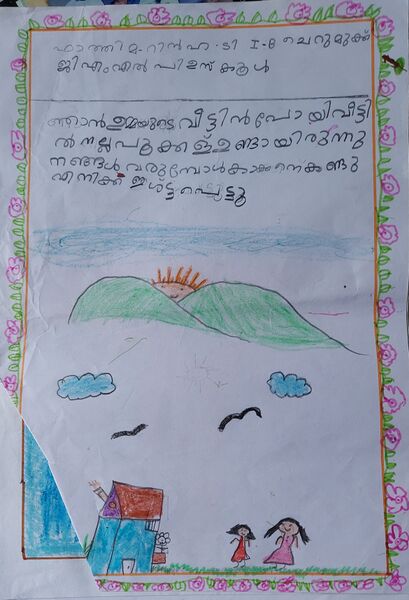 ഫാത്തിമ-റിൻഹ-ടി I-B ചെറുമുക്ക്
ജി എം എൽ പി ഉസ് കൂൾ
ഞാൻ ഉമ്മയുടെ വീട്ടിൻ പോ യി വീട്ടി
ൽ നല്ല പൂക്കള് ഉണ്ടായിരുന്നു
നങ്ങൾ വരുമ്പോൾ കാക്ക നെ കണ്ടു
എനിക്ക് ഇഷ്ട്ട പ്പെട്ടു